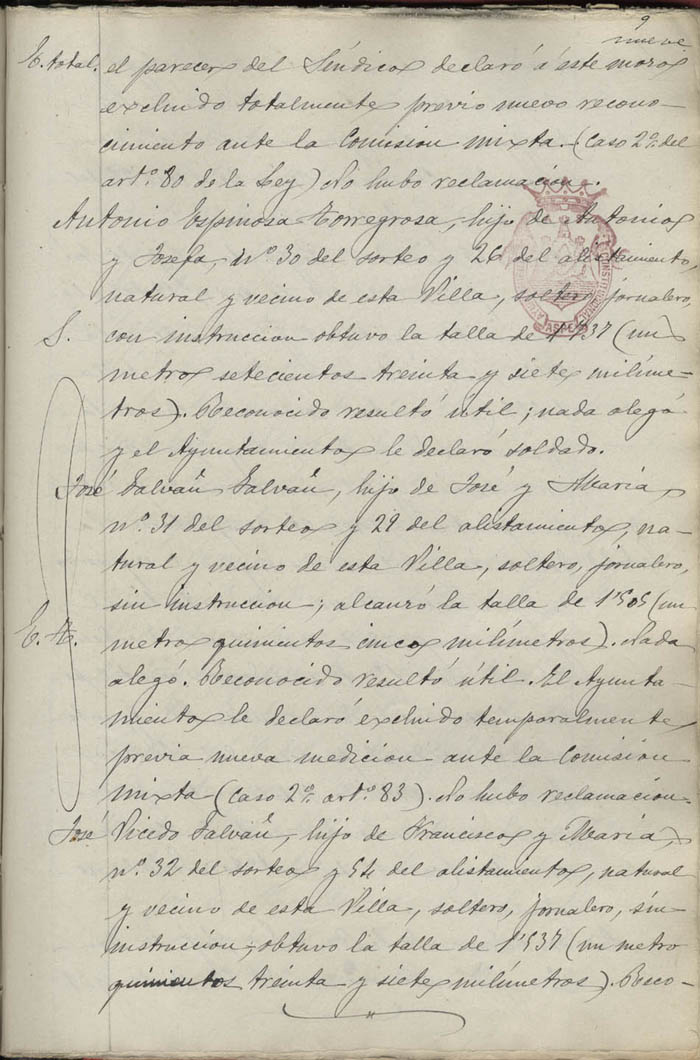 9
nueve
E. total. el parecer del Síndico declaró á este mozo
excluido totalmente previo nuevo recono-
cimiento ante la Comision mixta. (Caso 2º del
artº 80 de la Ley) No hubo reclamación.
Antonio Espinosa Torregrosa, hijo de Antonio
y Josefa, nº 30 del sorteo y 26 del alistamiento,
natural y vecino de esta Villa, soltero, jornalero,
S. con instruccion obtuvo la talla de 1'737 (un
metro setecientos treinta y siete milíme-
tros). Reconocido resultó útil; nada alegó
y el Ayuntamiento le declaró soldado.
José Galvañ Galvañ, hijo de José y María,
nº 31 del sorteo y 29 del alistamiento, na-
tural y vecino de esta Villa, soltero, jornalero,
sin instruccion; alcanzó la talla de 1'505 (un
E. t. metro quinientos cinco milímetros). Nada
alegó. Reconocido resultó útil. El Ayunta-
miento le declaró excluido temporalmente
previa nueva medicion ante la Comision
mixta (Caso 2º artº 83). No hubo reclamacion.
José Vicedo Galvañ, hijo de Francisco y María,
nº 32 del sorteo y 54 del alistamiento, natural
y vecino de esta Villa, soltero, jornalero, sin
instruccion, obtuvo la talla de 1'537 (un metro
quinientos treinta y siete milímetros). Reco-